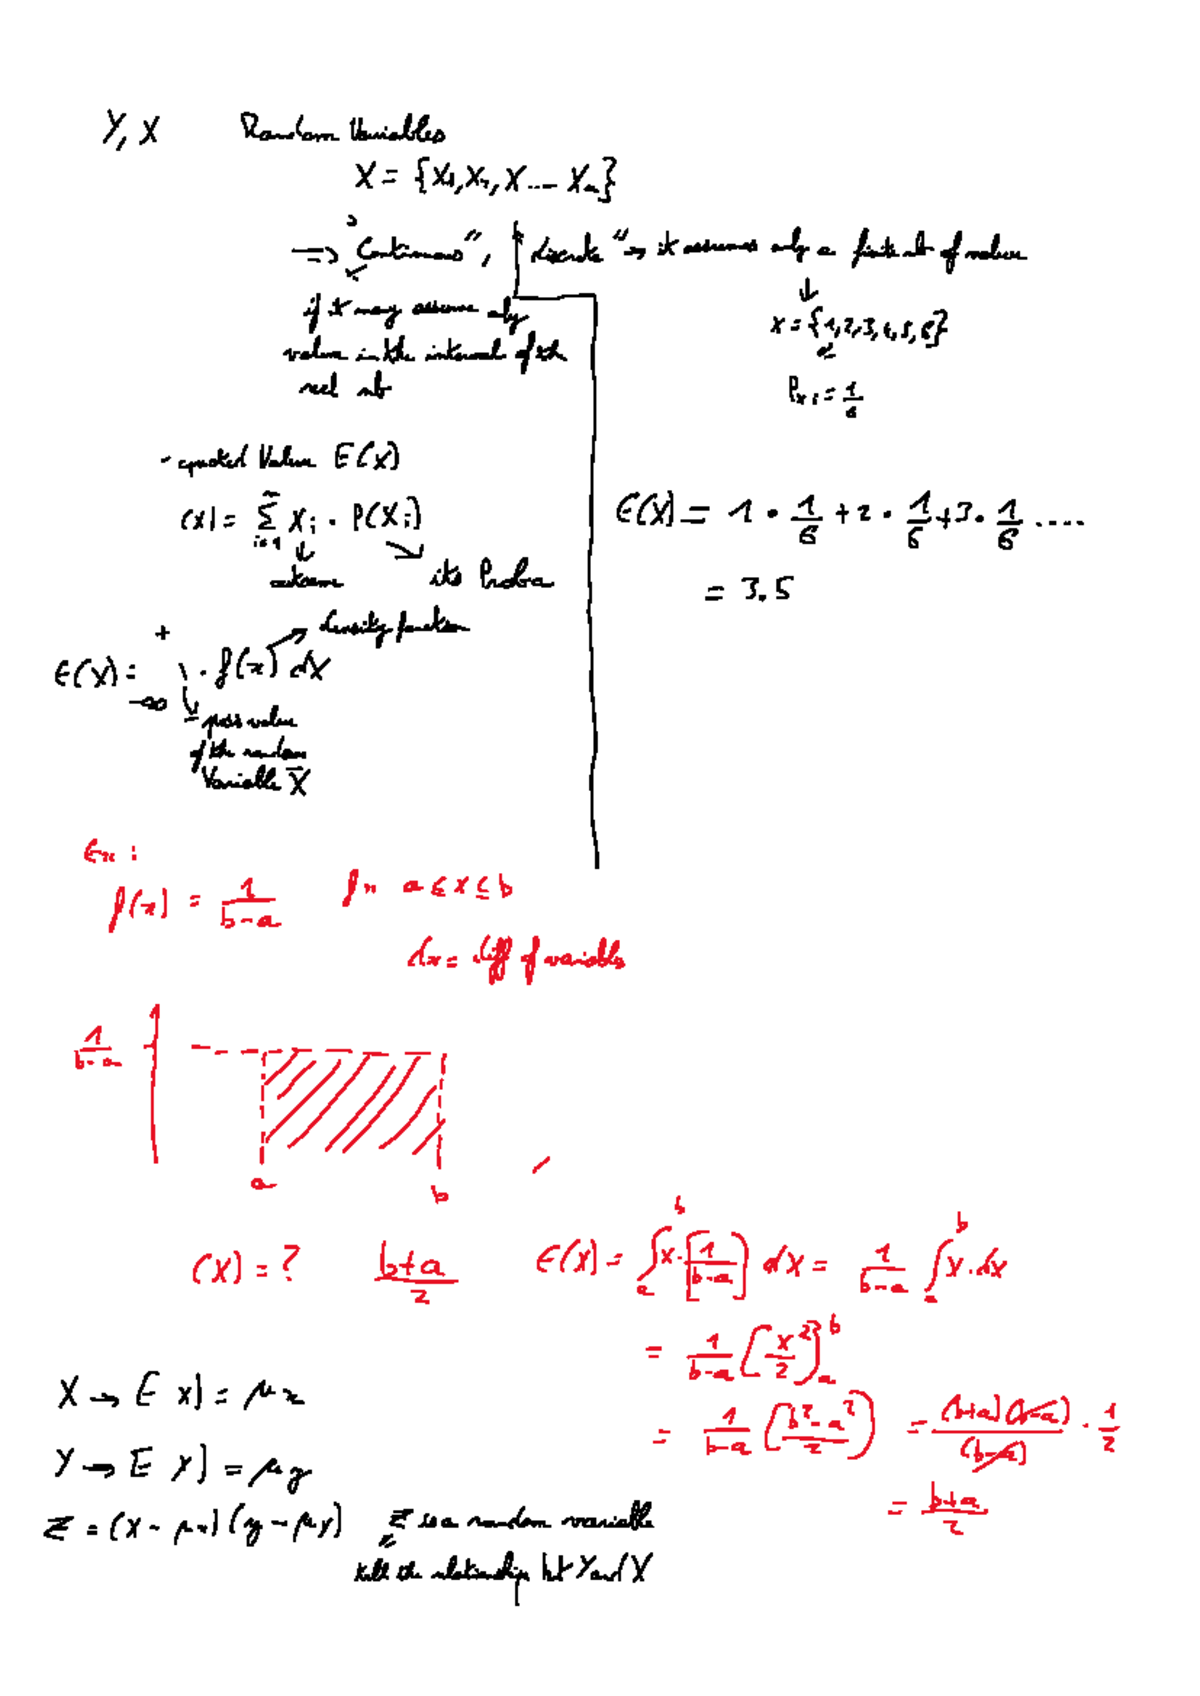 Y, X Random Variables
X = {X1, X2, X .... Xn}
=> "Continuous", "discrete" → it assumes only a finite nb of values
if it may assume any
value in the interval of the
real nb
↓
x = {1,2,3,4,5,6}
Pxi = 1/6
- expected Value E(X)
(X) = Σ i=1 n Xi . P(Xi)
outcome its Proba
E(X) = 1 . 1/6 + 2 . 1/6 + 3 . 1/6 ....
= 3.5
density function
E(X) = + -∞ . f(x) dX
poss value
of the random
Variable X
Ex :
f(x) = 1/(b-a) a ≤ x ≤ b
dx = diff of variables
1/(b-a)
a b
(X) = ? (b+a)/2 E(X) = ∫a b x . [1/(b-a)] dx = 1/(b-a) ∫a b x . dx
= 1/(b-a) [x²/2]a b
= 1/(b-a) [(b²-a²)/2] = (b+a)(b-a)/(b-a) . 1/2
= (b+a)/2
X → E x) = μx
Y → E y) = μy
Z = (X - μx)(y - μy) Z is a random variable
tell the relationship bt Y and X